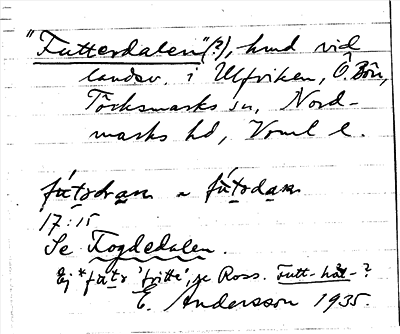 "Futterdalen" (?), hmd vid
landsv. i Ulfviken, Ö. Bön,
Töcksmarks sn, Nord-
marks hd, Vrml l.
fútədan ~ fútədan
17:15
Se Fogdedalen.
Ej *fútə 'fitta', se Ross. Futt-hål-?
E. Andersson 1935.